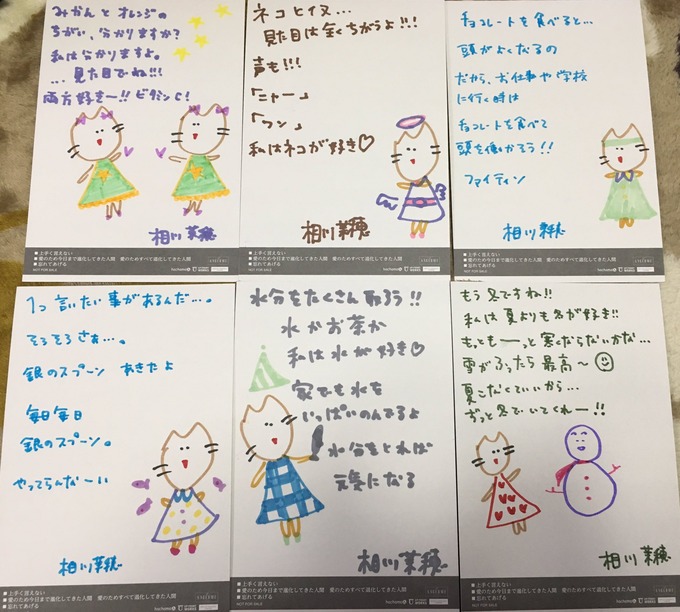 みかんとオレンジの
ちがい、分かりますか?
私は分かりますよ。
...見た目でね!!!
両方好きー!! ビタミンC!
相川茉穂
■上手く言えない
■愛のため今日まで進化してきた人間 愛のためすべて退化してきた人間
■忘れてあげる
NOT FOR SALE
ネコとイヌ...
見た目は全くちがうよ!!!
声も!!!
「ニャー」
「ワン」
私はネコが好き♡
相川茉穂
■上手く言えない
■愛のため今日まで進化してきた人間 愛のためすべて退化してきた人間
■忘れてあげる
NOT FOR SALE
チョコレートを食べると...
頭がよくなるの
だから、お仕事や学校
に行く時は
チョコレートを食べて
頭を働かろう!!
ファイティン
相川茉穂
■上手く言えない
■愛のため今日まで進化してきた人間 愛のためすべて退化してきた人間
■忘れてあげる
NOT FOR SALE
1つ言いたい事があるんだ...。
そろそろさぁ...。
銀のスプーン あきたよ
毎日毎日
銀のスプーン。
やってらんなーい
相川茉穂
■上手く言えない
■愛のため今日まで進化してきた人間 愛のためすべて退化してきた人間
■忘れてあげる
NOT FOR SALE
水分をたくさん取ろう!!
水かお茶か
私は水が好き♡
家でも水を
いっぱいのんでるよ
水分をとれば
元気になる
相川茉穂
■上手く言えない
■愛のため今日まで進化してきた人間 愛のためすべて退化してきた人間
■忘れてあげる
NOT FOR SALE
もう冬ですね!!
私は夏よりも冬が好き!!
もっともーーっと寒くならないかな...
雪がふったら最高〜
夏こなくていいから...
ずっと冬でいてくれー!!
相川茉穂
■上手く言えない
■愛のため今日まで進化してきた人間 愛のためすべて退化してきた人間
■忘れてあげる
NOT FOR SALE